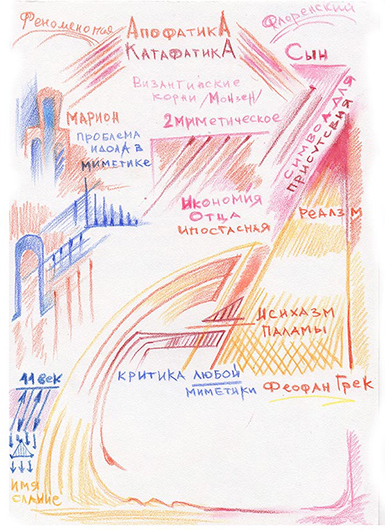 Феноменолия
Флоренский
АпофатикА
КатафатикА
Сын
Византийские
корни /Монзен/
2миметическое
Марион
проблема
идола в
миметике
символ для
присутствия
Икономия
Отца
ипостасная
реализм
исихазм
Паламы
критика любой
миметики
Феофан Грек
11 век
имя
славие